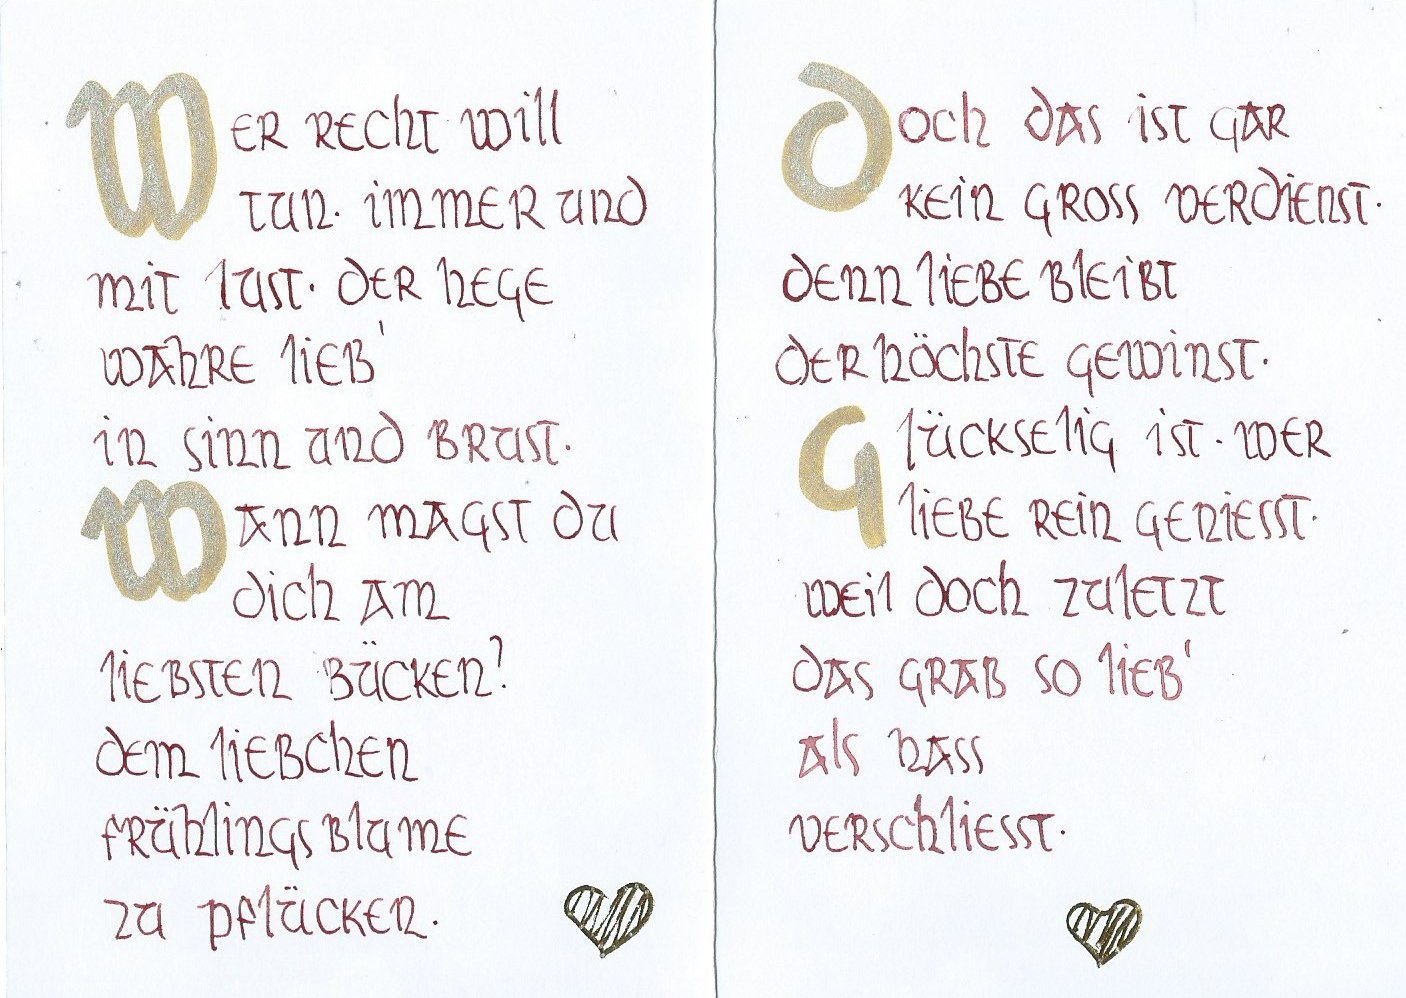 Wer recht will
tun · immer und
mit lust · der hege
wahre lieb'
in sinn und brust ·
Wann magst du
dich am
liebsten bücken?
dem liebchen
frühlingsblume
zu pflücken.
Doch das ist gar
kein gross verdienst ·
denn liebe bleibt
der höchste gewinst ·
Glückselig ist · wer
liebe rein geniesst ·
weil doch zuletzt
das grab so lieb'
als hass
verschliesst ·